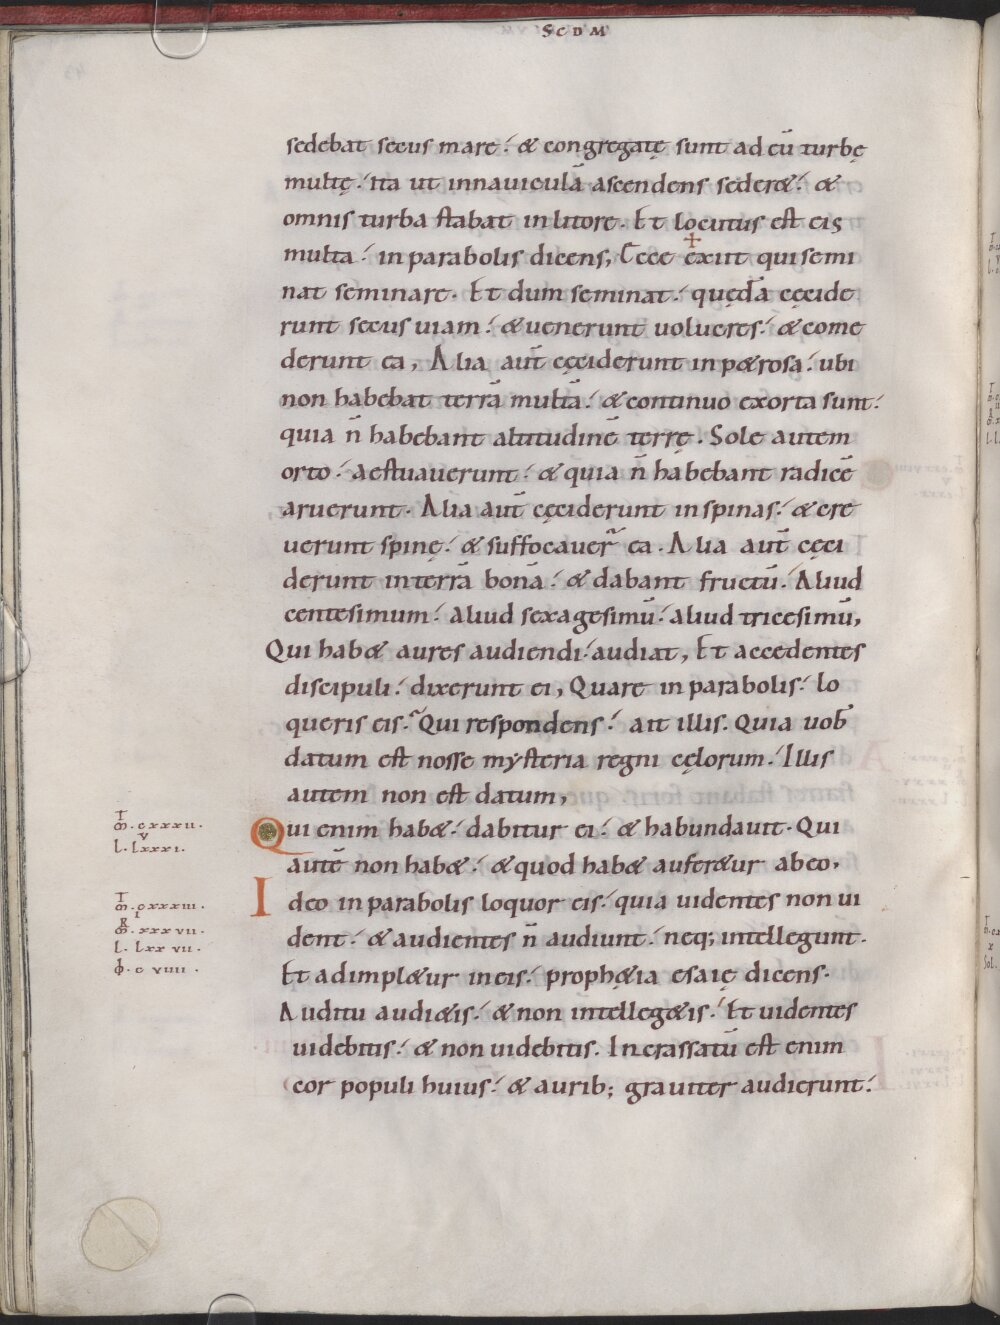 SCDM
sedebat secus mare. & congregatę sunt ad cū turbę
multę. ita ut innauiculā ascendens seder&. &
omnis turba stabat inlitore. Et locutus est eis
multa. inparabolis dicens, Ecce exiit quisemi
nat seminare. Et dum seminat. quędā cęcide
runt secus uiam. &uenerunt uolucres. &come
derunt ea, Alia aut̄ cęciderunt inp&rosa. ubi
non habebat terrā multā. &continuo exorta sunt.
quia n̄ habebant altitudinē terrę. Sole autem
orto. aestuauerunt. & quia n̄ habebant radicē
aruerunt. Alia aut̄ cęciderunt inspinas. &cre
uerunt spinę. & suffocauer̄ ea. Alia aut̄ cęci
derunt interrā bonā. &dabant fructū. Aliud
centesimum. aliud sexagesimū. aliud tricesimū,
Qui hab& aures audiendi. audiat, Et accedentes
discipuli. dixerunt ei, Quare inparabolis. lo
queris eis. Qui respondens. ait illis. Quia uob̄
datum est nosse mysteria regni cęlorum. Illis
autem non est datum,
T
m. cxxxii.
v
l. lxxxi.
Qui enim hab&. dabitur ei. & habundauit. Qui
autē non hab&. &quod hab& aufer&ur abeo,
T
m. cxxxiii.
i
R
m. xxxvii.
l. lxxvii.
ıo. c viiii.
Ideo inparabolis loquor eis. quia uidentes non ui
dent. &audientes n̄ audiunt. neq; intellegunt.
Et adimpl&ur ineis. proph&ia esaię dicens.
Auditu audi&is. &non intelleg&is. Et uidentes
uidebitis. & non uidebitis. Incrassatū est enim
cor populi huius. & aurib; grauiter audierunt.